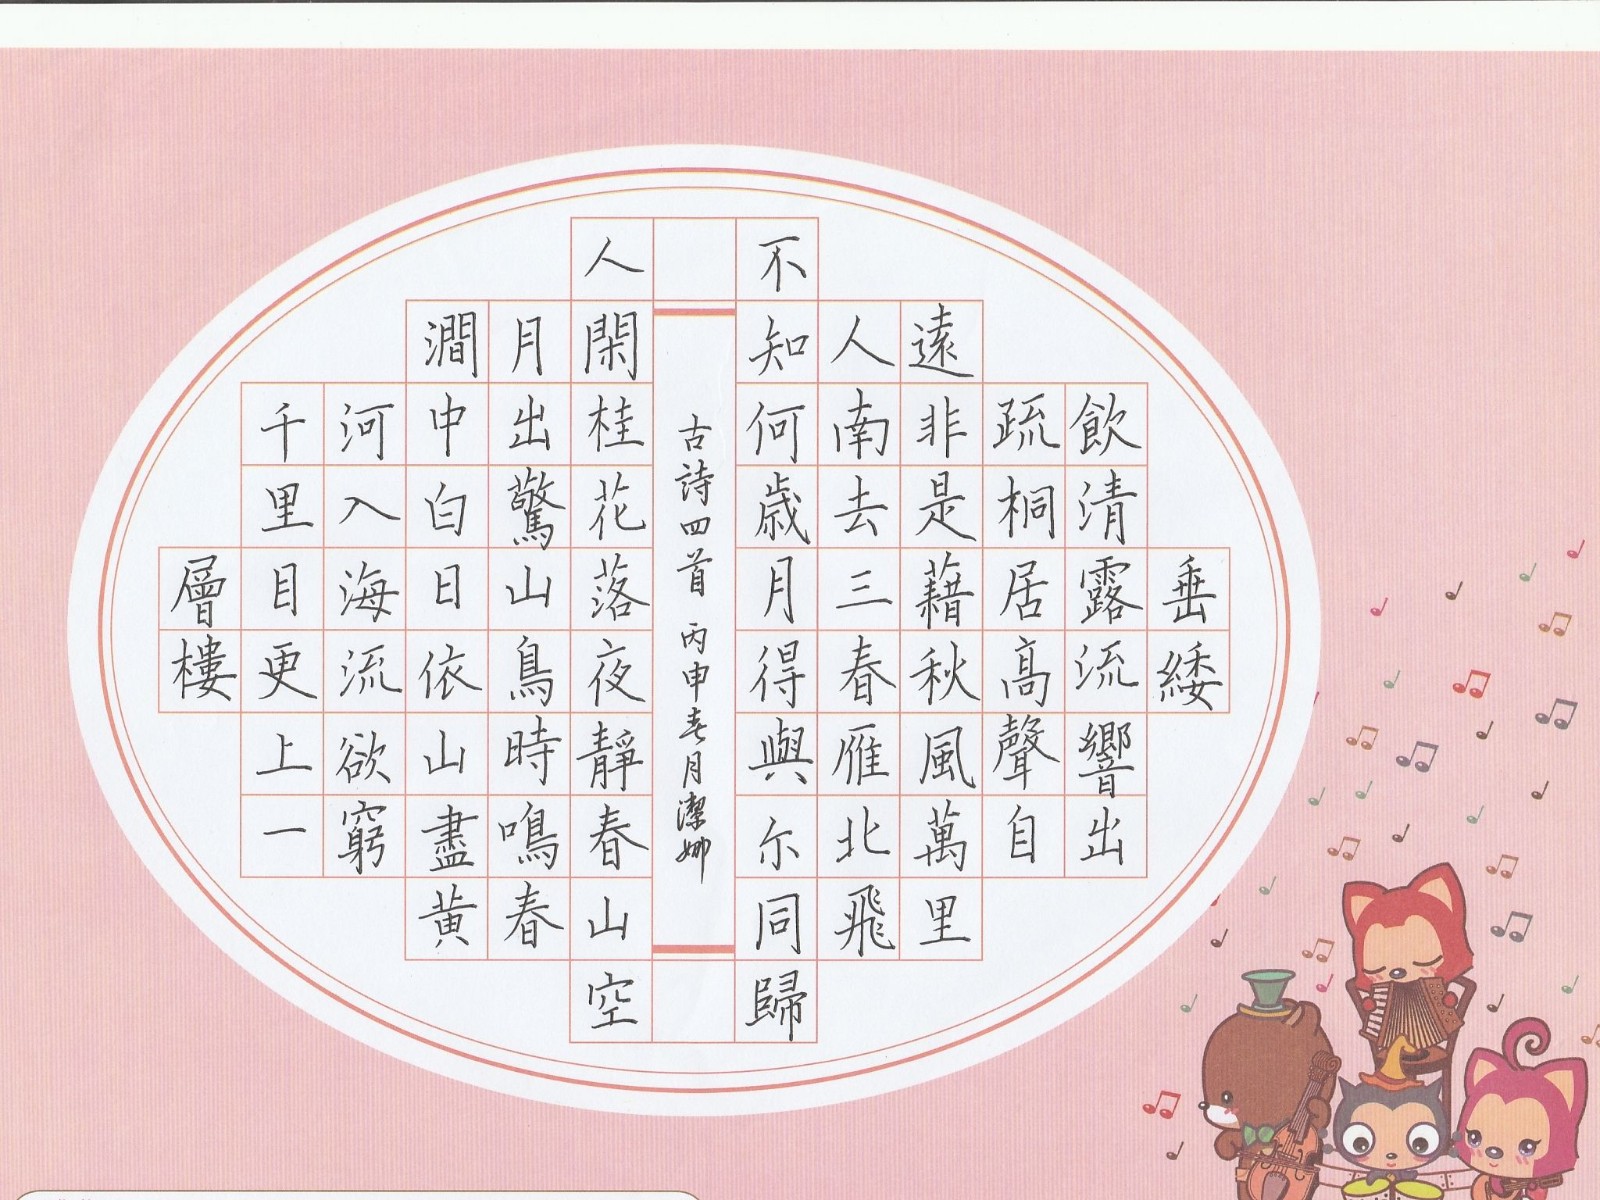 垂緌
飲清露流響出
疏桐居高聲自
遠非是藉秋風萬里
人南去三春雁北飛
不知何歳月得與尓同歸
古詩四首 丙申春月潔娜
人閑桂花落夜靜春山空
月出驚山鳥時鳴春
澗中白日依山盡黄
河入海流欲窮
千里目更上一
層樓